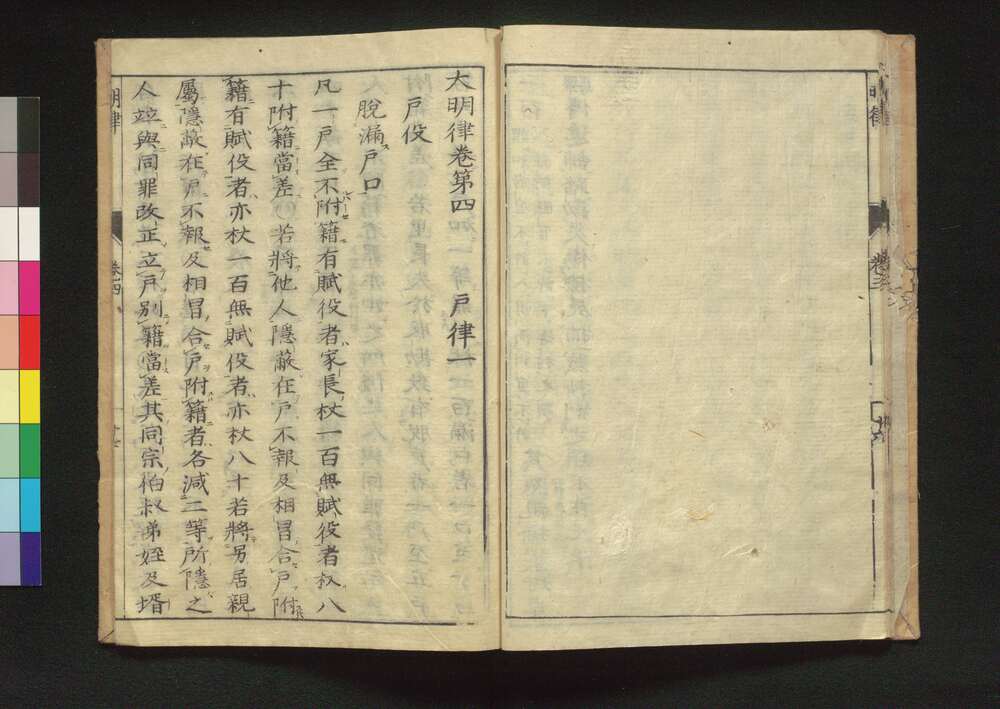 大明律卷第四　戶律一
戶役
脫漏戶口
凡一戶全不附籍有賦役者家長杖一百無賦役者杖八
十附籍當差若將他人隱蔽在戶不報及相冒合戶附
籍有賦役者亦杖一百無賦役者亦杖八十若將另居親
屬隱蔽在戶不報及相冒合戶附籍者各減二等所隱之
人竝與同罪改正立戶別籍當差其同宗伯叔弟姪及壻
明律
卷四